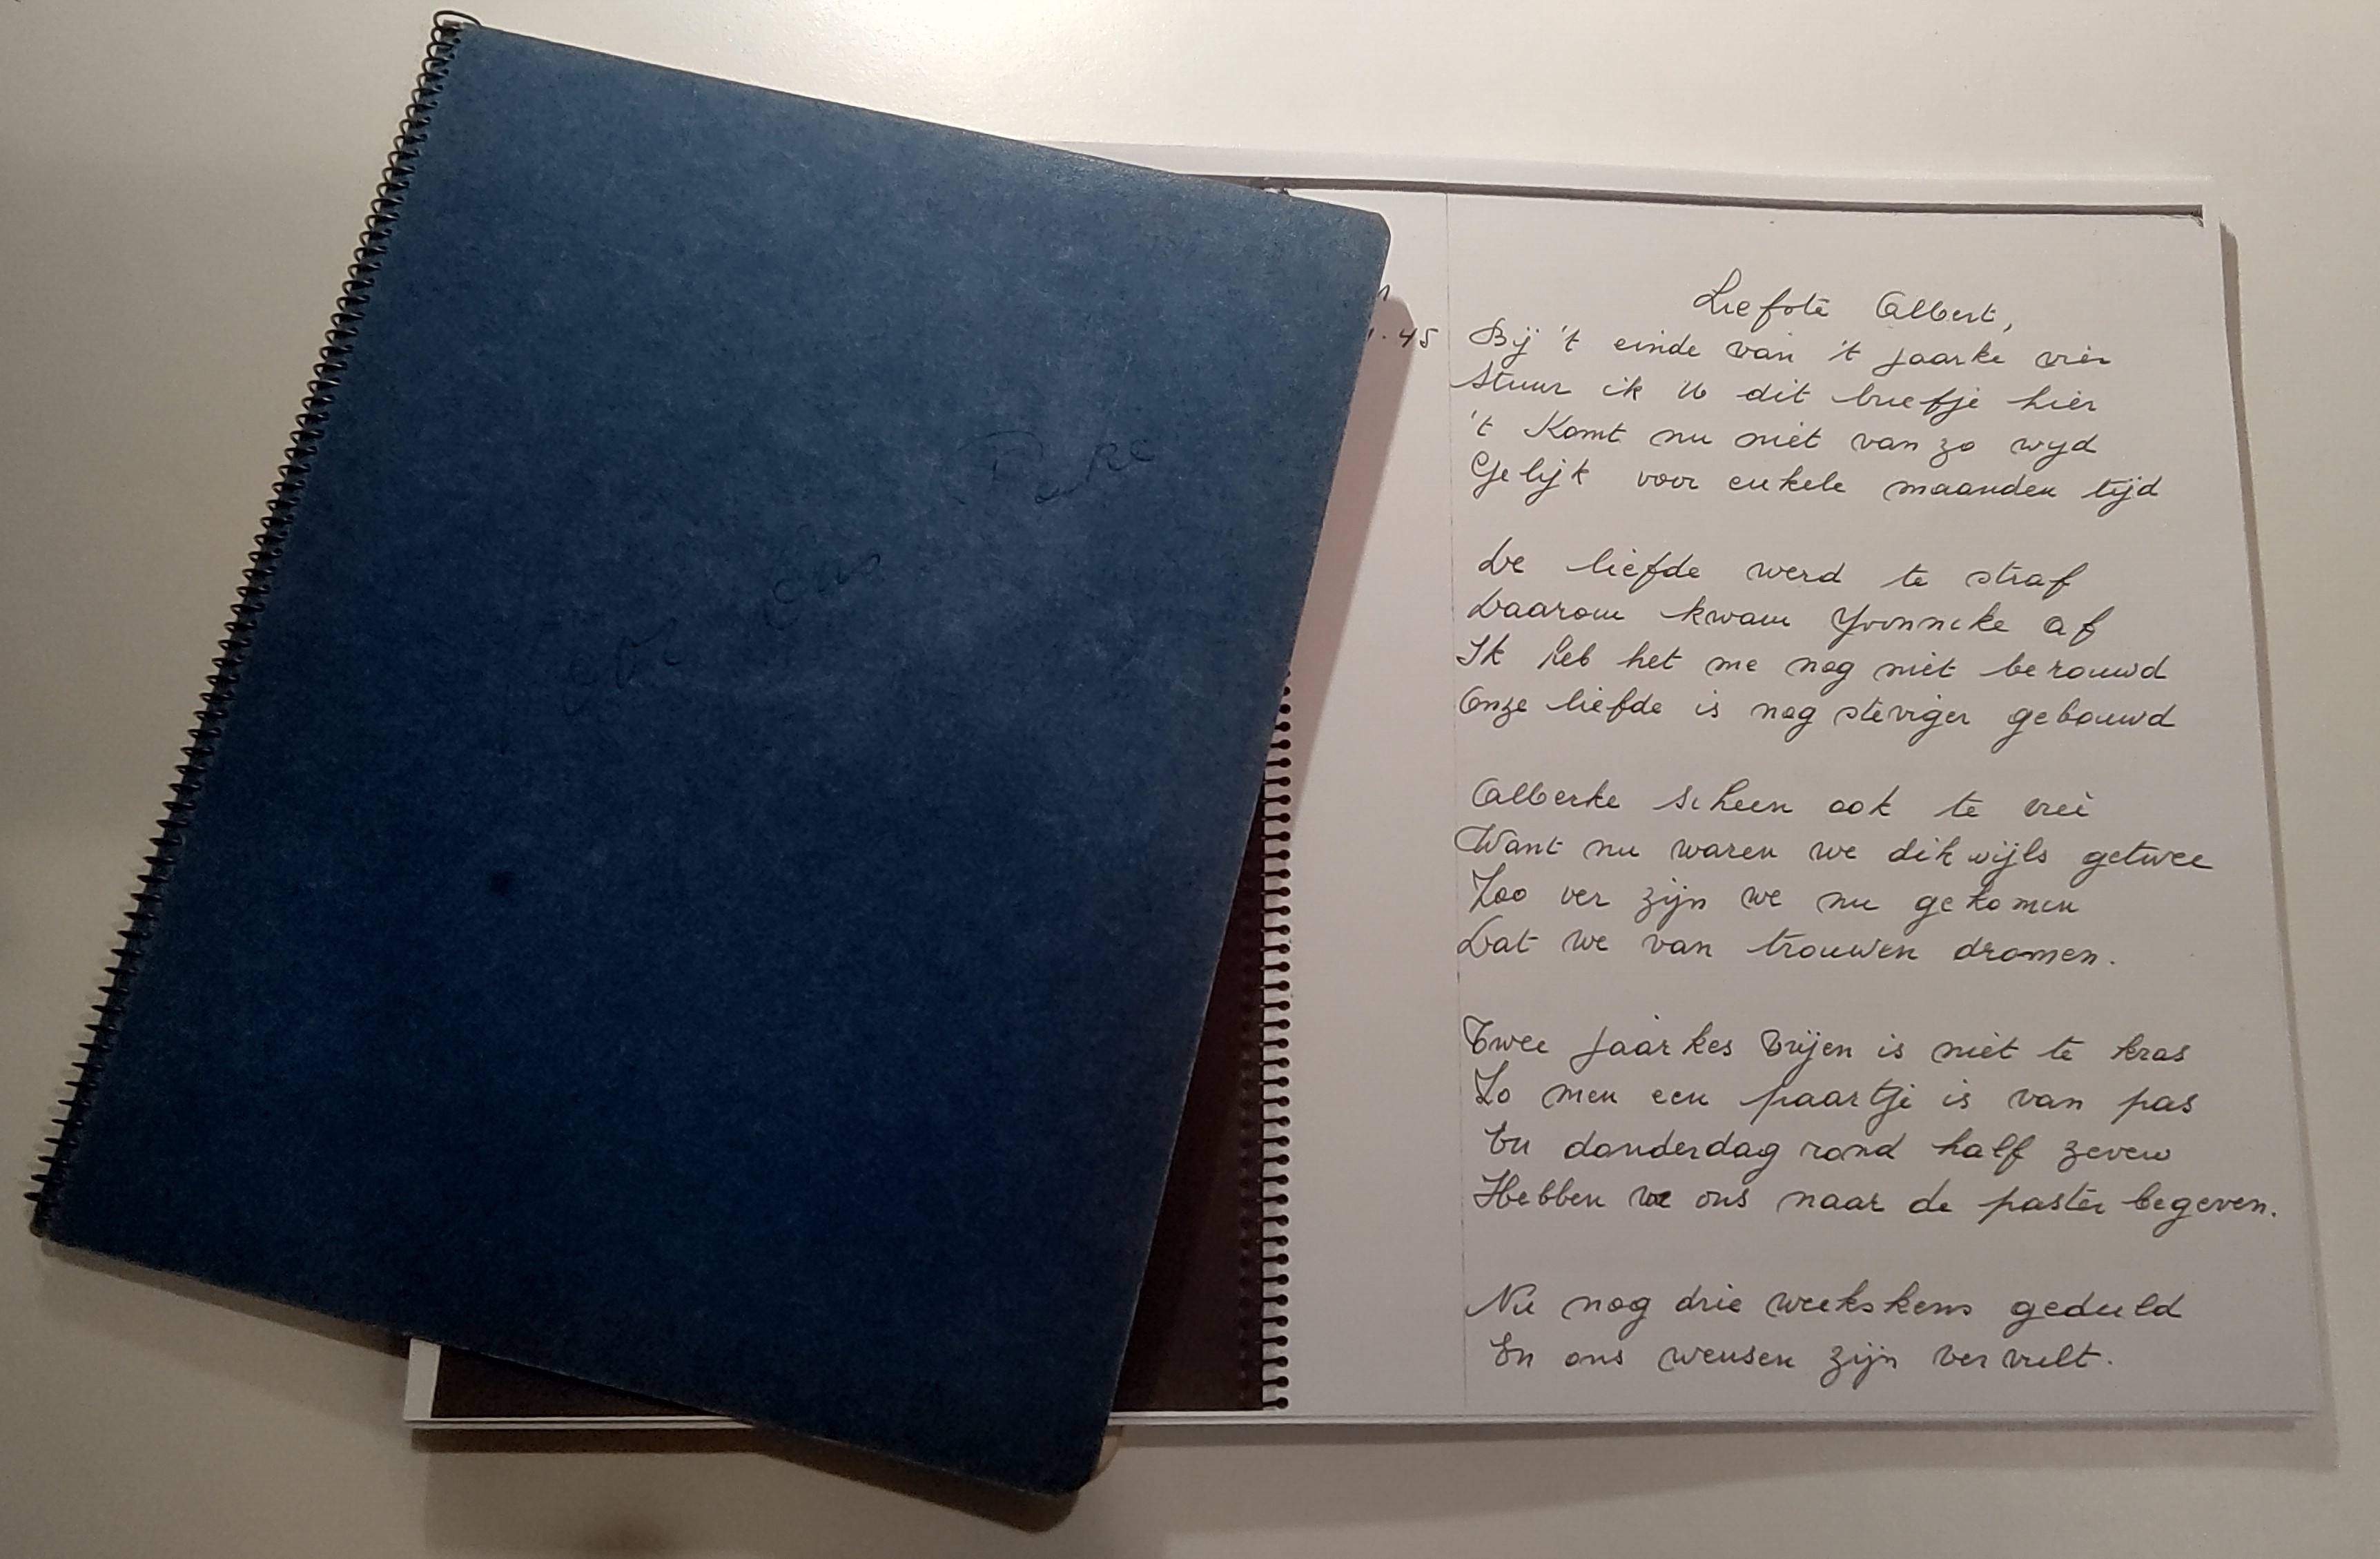 voor ons Peke
.45
Liefste Albert,
Bij 't einde van 't jaarke vier
Stuur ik U dit briefje hier
't Komt nu niet van zo wijd
Gelijk voor enkele maanden tijd
De liefde werd te straf
Daarom kwam Yvonneke af
Ik heb het me nog niet berouwd
Onze liefde is nog steviger gebouwd
Alberke scheen ook te vreê
Want nu waren we dikwijls getwee
Zoo ver zijn we nu gekomen
Dat we van trouwen dromen.
Twee jaarkes vrijen is niet te kras
Zo men een paartje is van pas
En donderdag rond half zeven
Hebben we ons naar de paster begeven.
Nu nog drie weekskens geduld
En ons wensen zijn vervult.